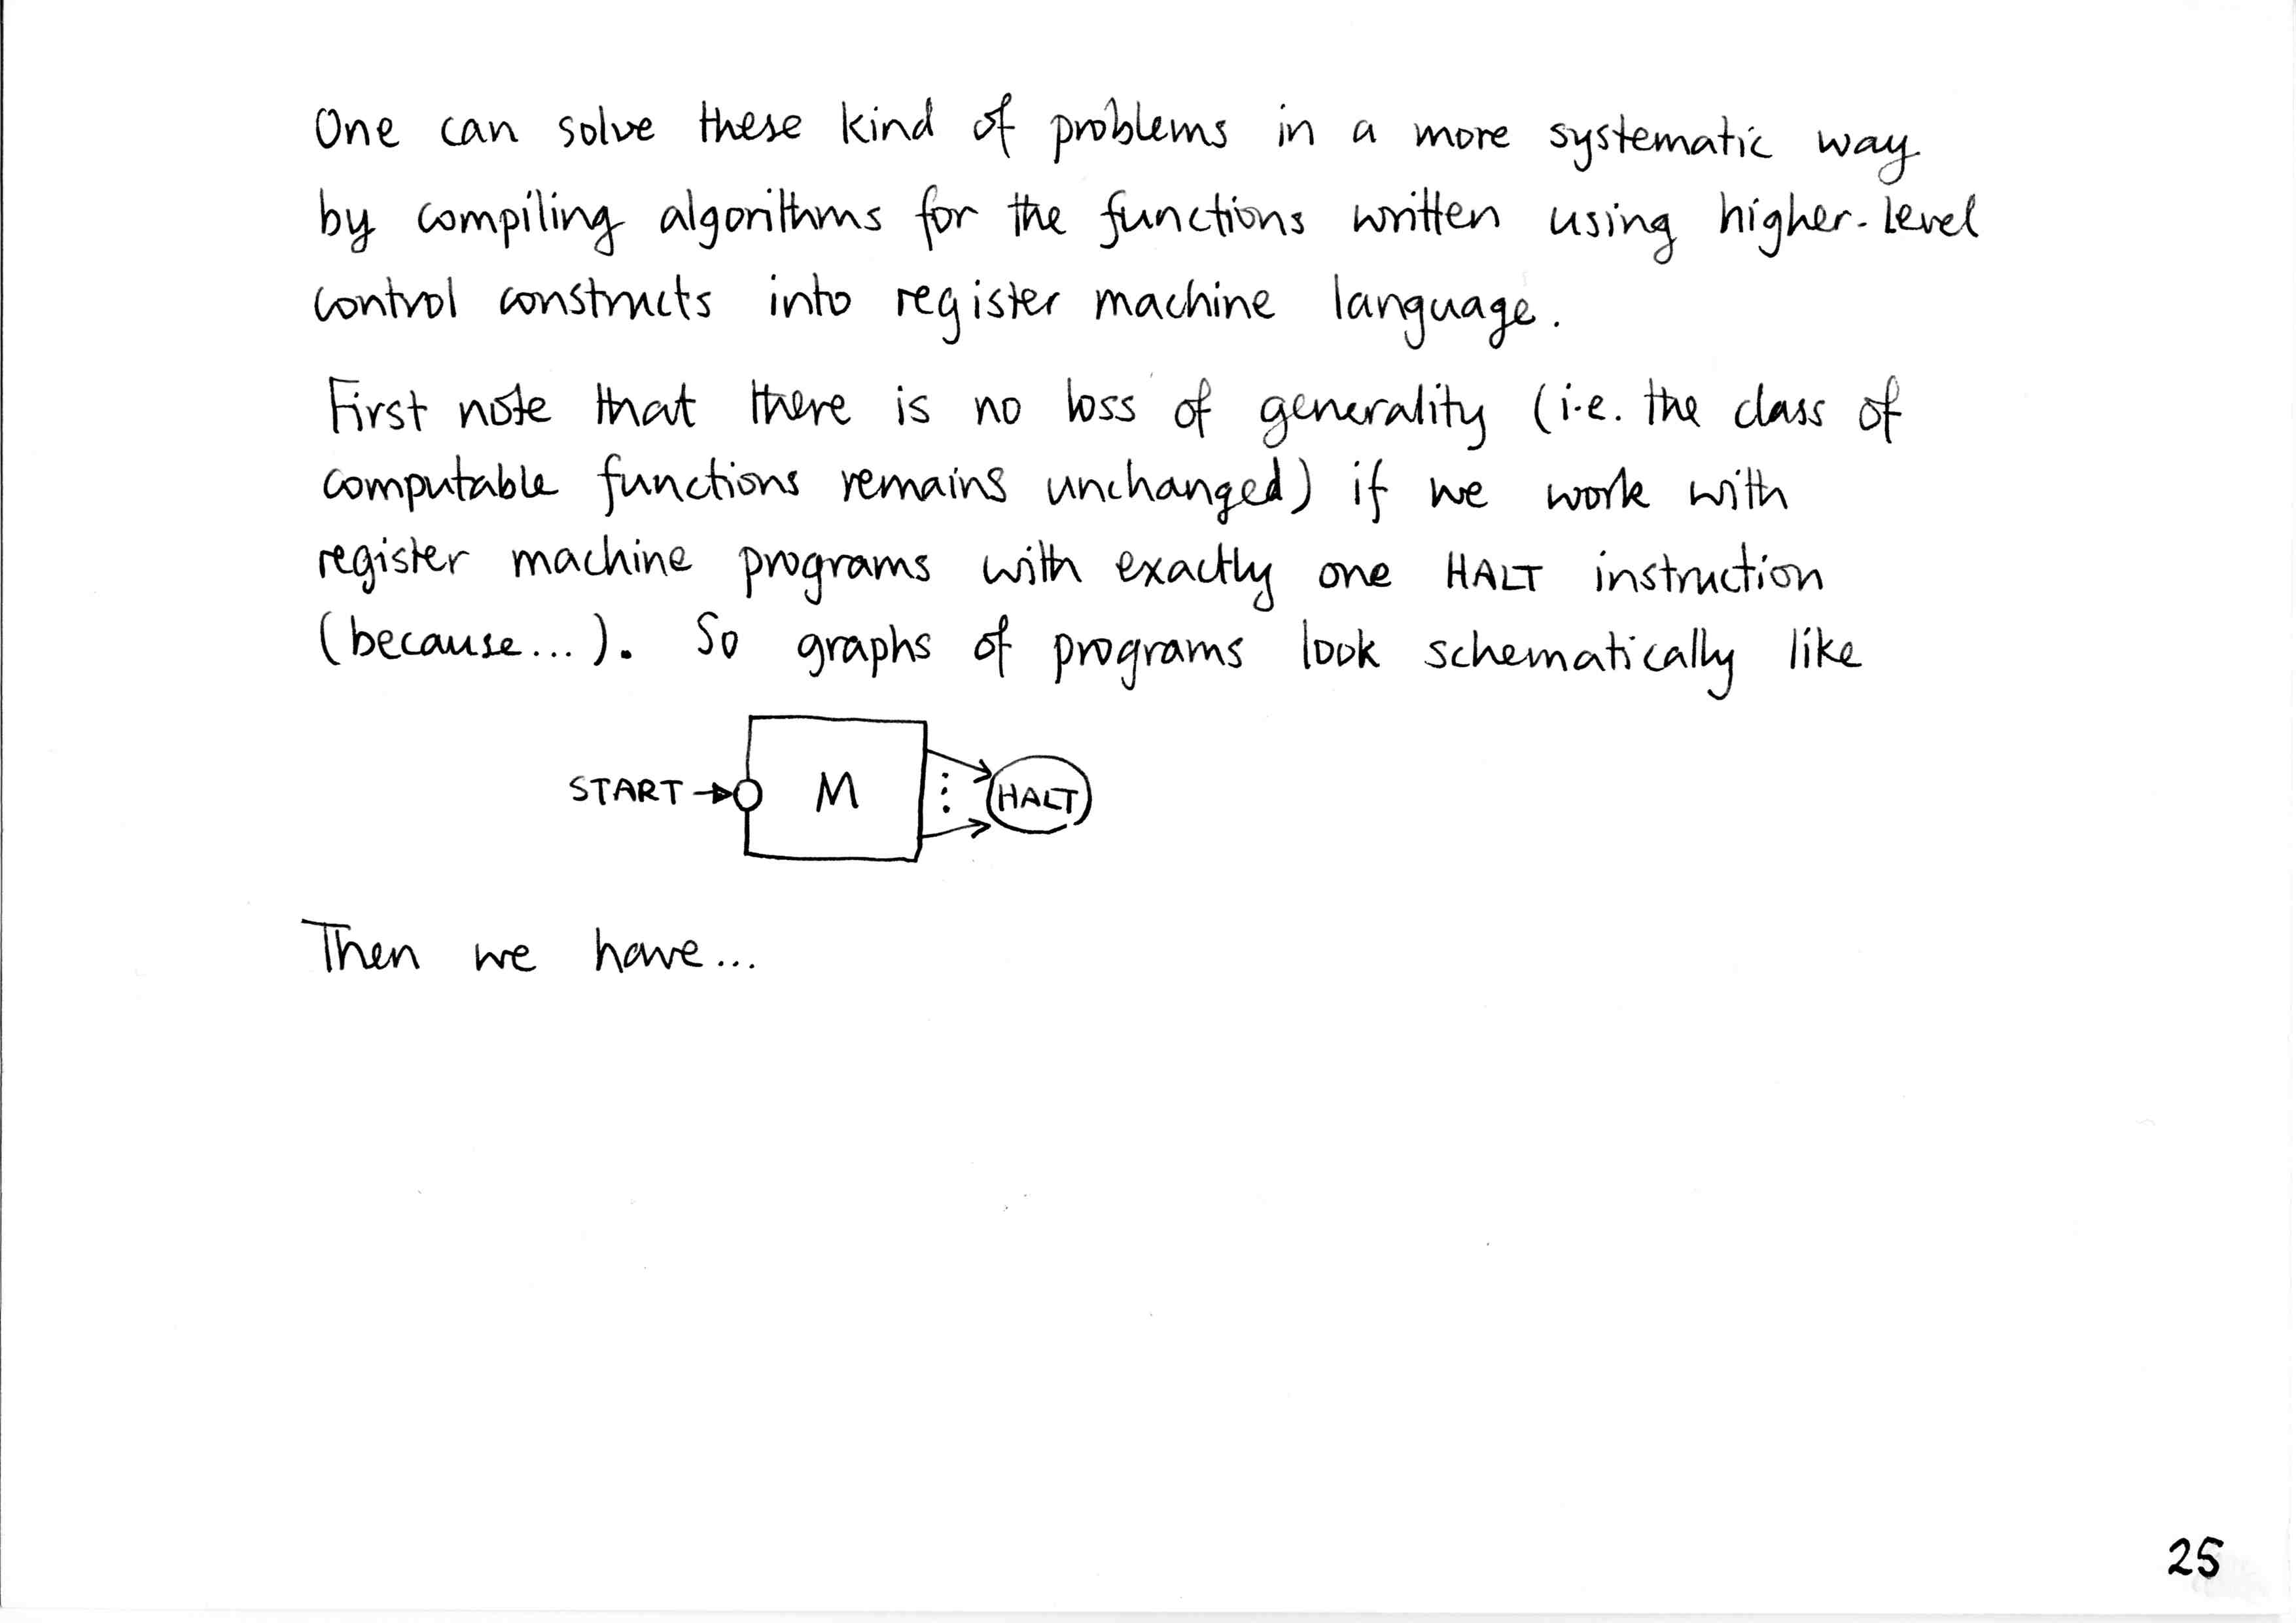 One can solve these kind of problems in a more systematic way
by compiling algorithms for the functions written using higher-level
control constructs into register machine language.
First note that there is no loss of generality (i.e. the class of
computable functions remains unchanged) if we work with
register machine programs with exactly one HALT instruction
(because...). So graphs of programs look schematically like
START M HALT
Then we have...
25